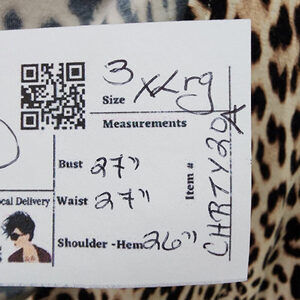 3 XLrg
Size
Measurements
Bust 27"
Waist 27"
Shoulder -Hem 26"
Item # CHRTY20A
ocal Delivery